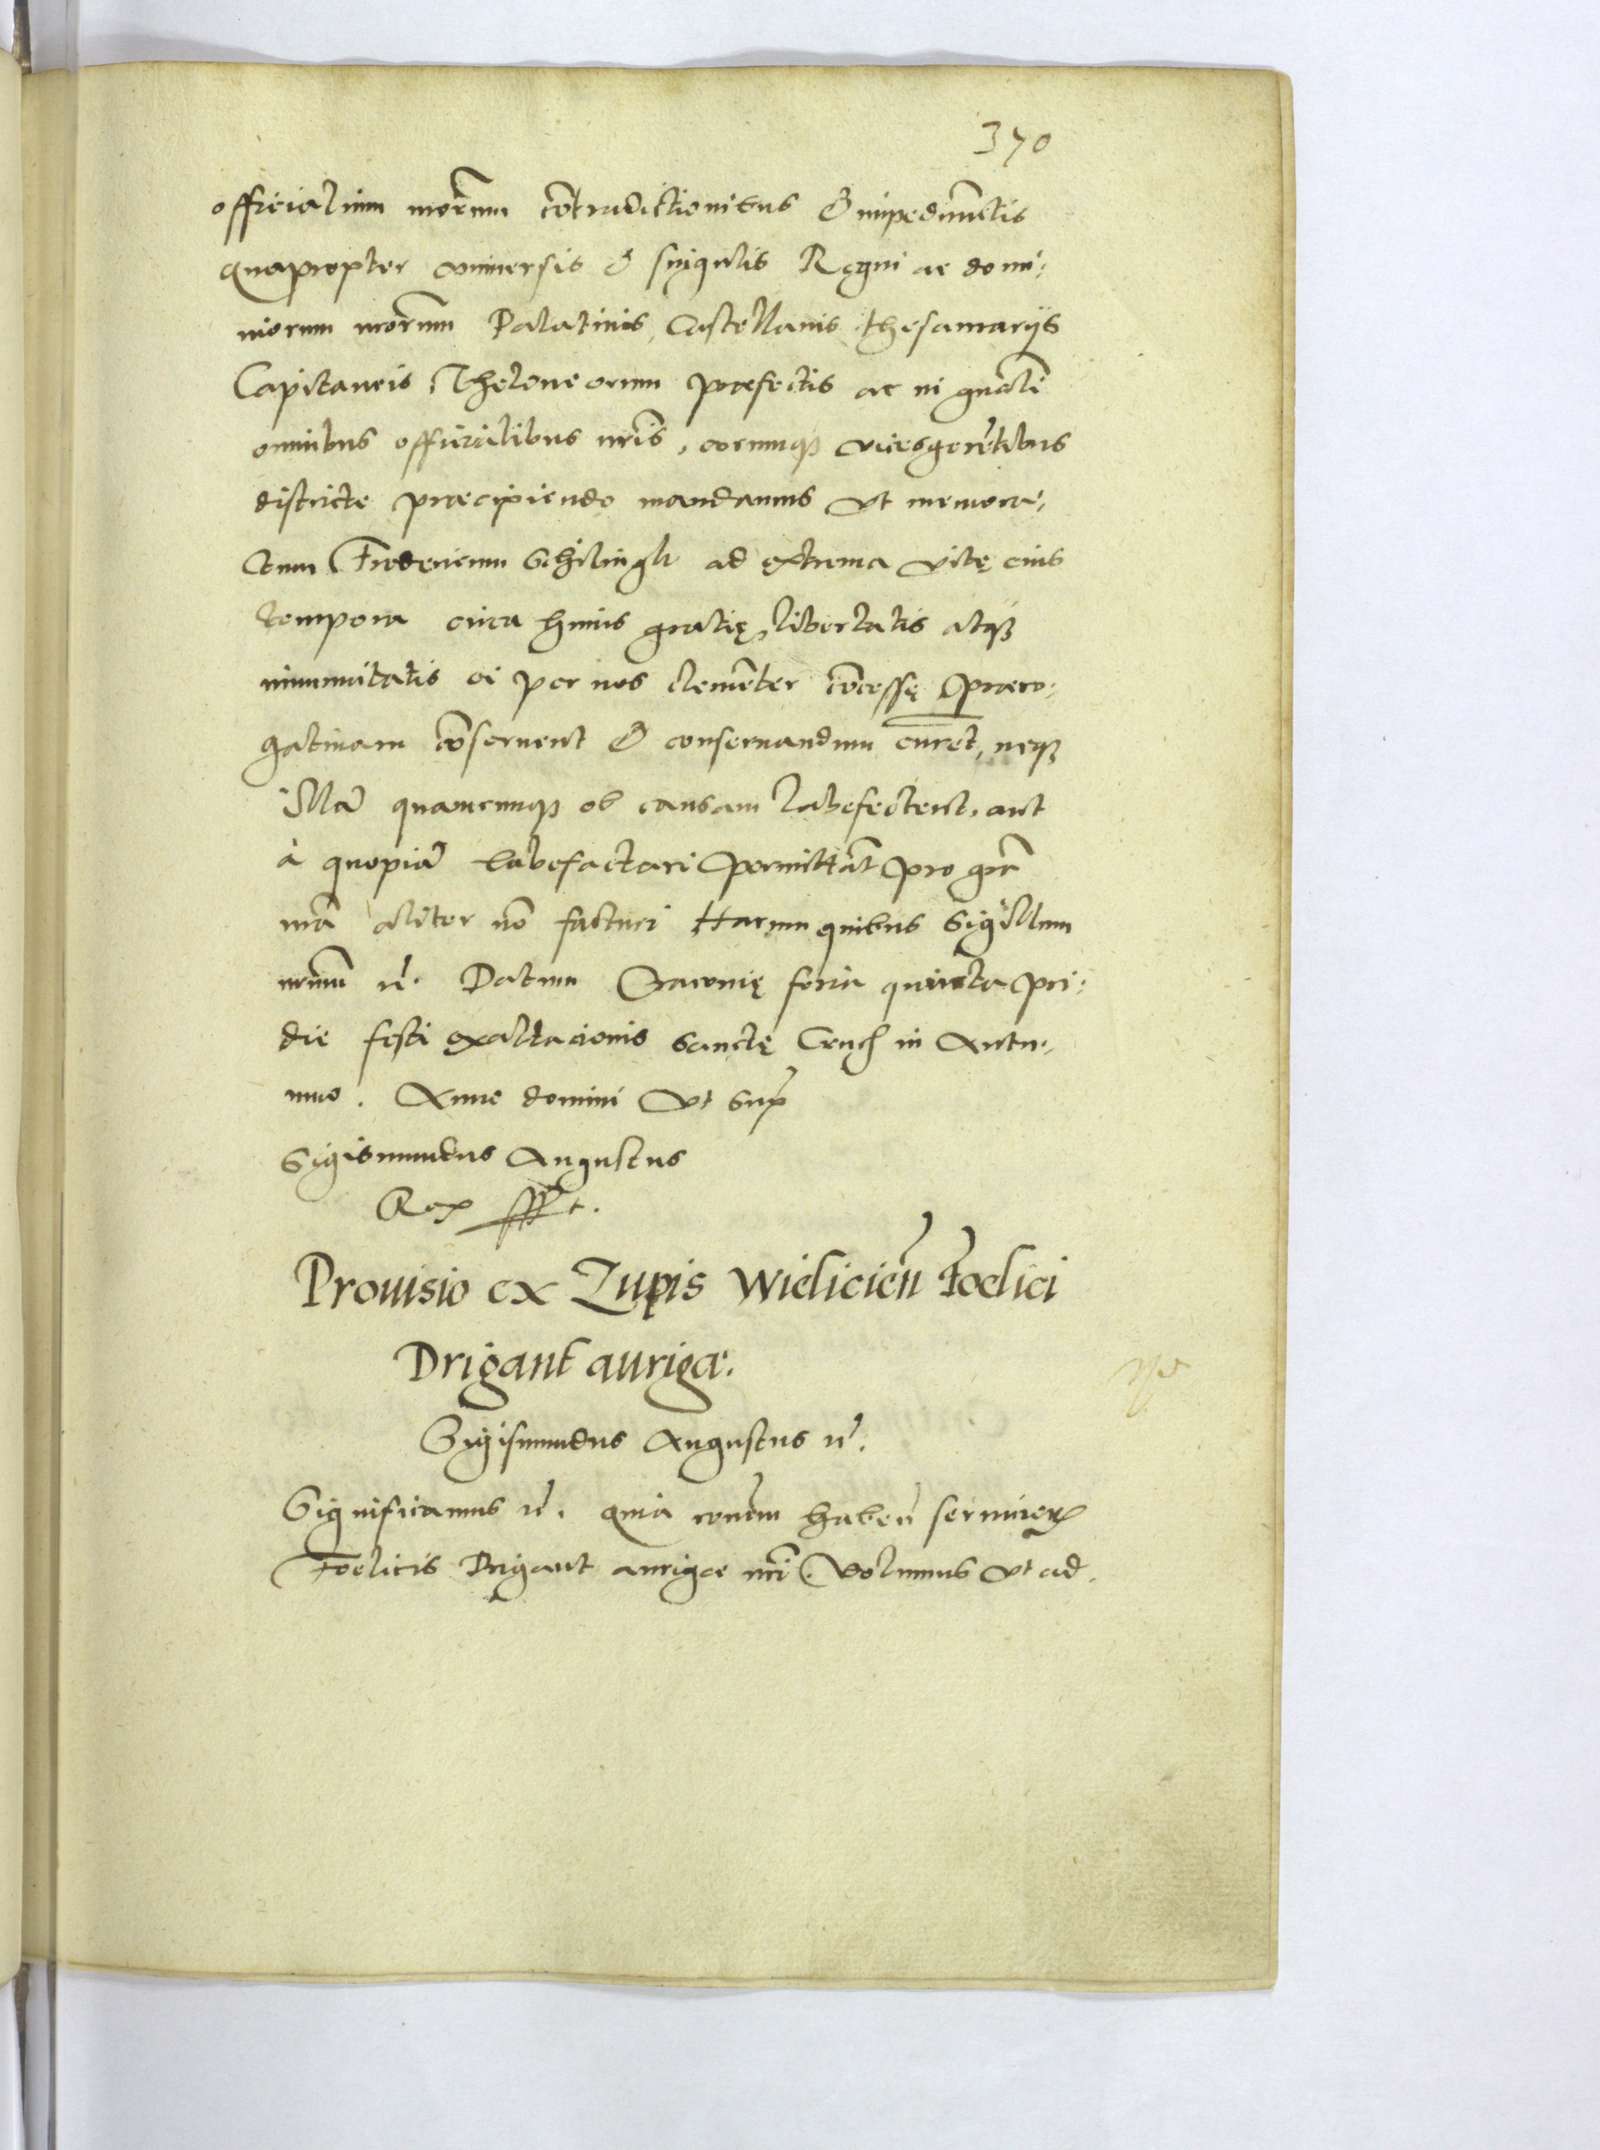 370
officialium nrorum cōtradictionibus & impedimētis
quapropter vniuersis & singulis Regni ac domi:
niorum nrorum Palatinis, Castellanis thesaurarijs
Capitaneis Theloneorum præfectis ac in gnali
omnibus officialibus nris, eorumq; vicesgerētibus
districte præcipiendo mandamus vt memora:
tum Fredericum Schilingk ad extrema vitę eius
tempora circa huius gratię, libertatis atq;
immunitatis ei per nos clemēter cōcessę præro:
gatiuam cōseruent & conseruandum curēt, neq;
illā quamcunq; ob causam labefectent, aut
à quopiā labefactari permittāt pro gra
nra aliter nō facturi Harum quibus Sigillum
nrum etc. Datum Cracouię feria quinta pri:
die festi exaltacionis sanctę Crucis in Autu:
mno. Anno domini vt supra
Sigismundus Augustus
Rex sspt.
Prouisio ex Zupis Wielicieñ Foelici
Drigant aurigæ.
Sigismundus Augustus etc.
Significamus etc. quia rōnem habeñ seruicior
Foelicis Drigant aurigæ nri. Volumus vt ad